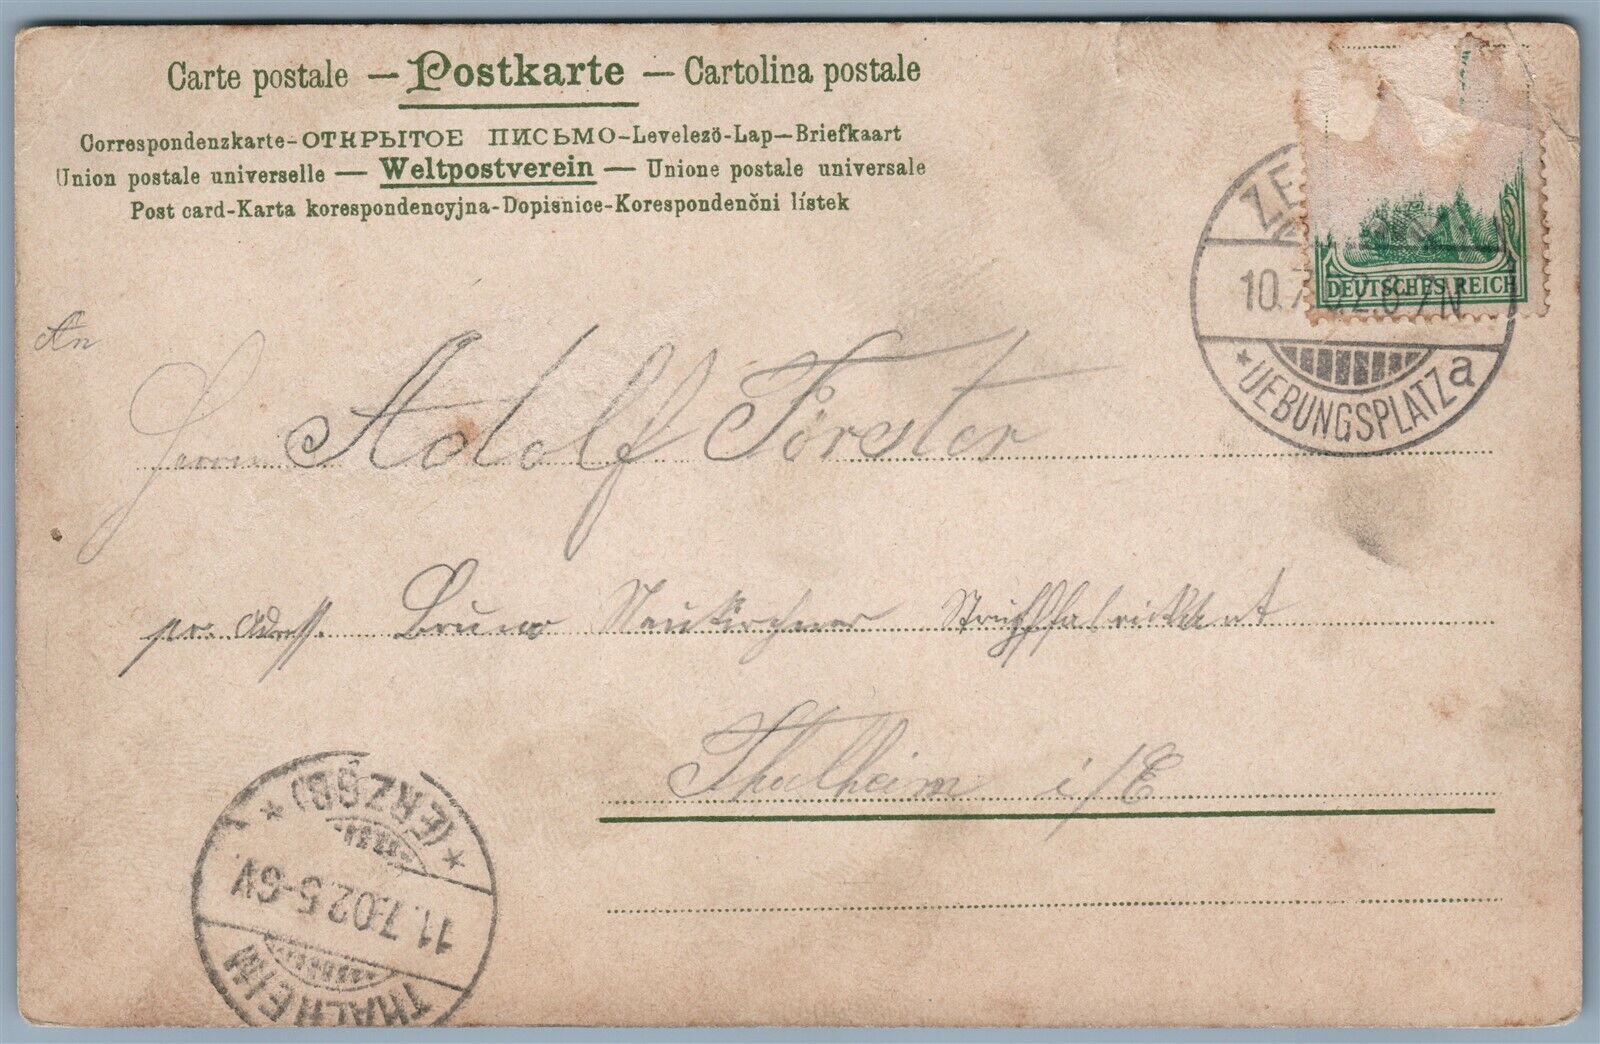 Carte postale — Postkarte — Cartolina postale
Correspondenzkarte-ОТКРЫТОЕ ПИСЬМО-Levelezö-Lap—Briefkaart
Union postale universelle — Weltpostverein — Unione postale universale
Post card-Karta korespondencyjna-Dopisnice-Korespondenčni lístek
DEUTSCHES REICH
10.7. 02.6-7N
* UEBUNGSPLATZ a
An
Herrn Adolf Förster
pr. Adress. Bruno Neukirchner Strumpffabrikant
Thalheim i/E
* (ERZGB) *
11.7.02.5-6V.
THALHEIM